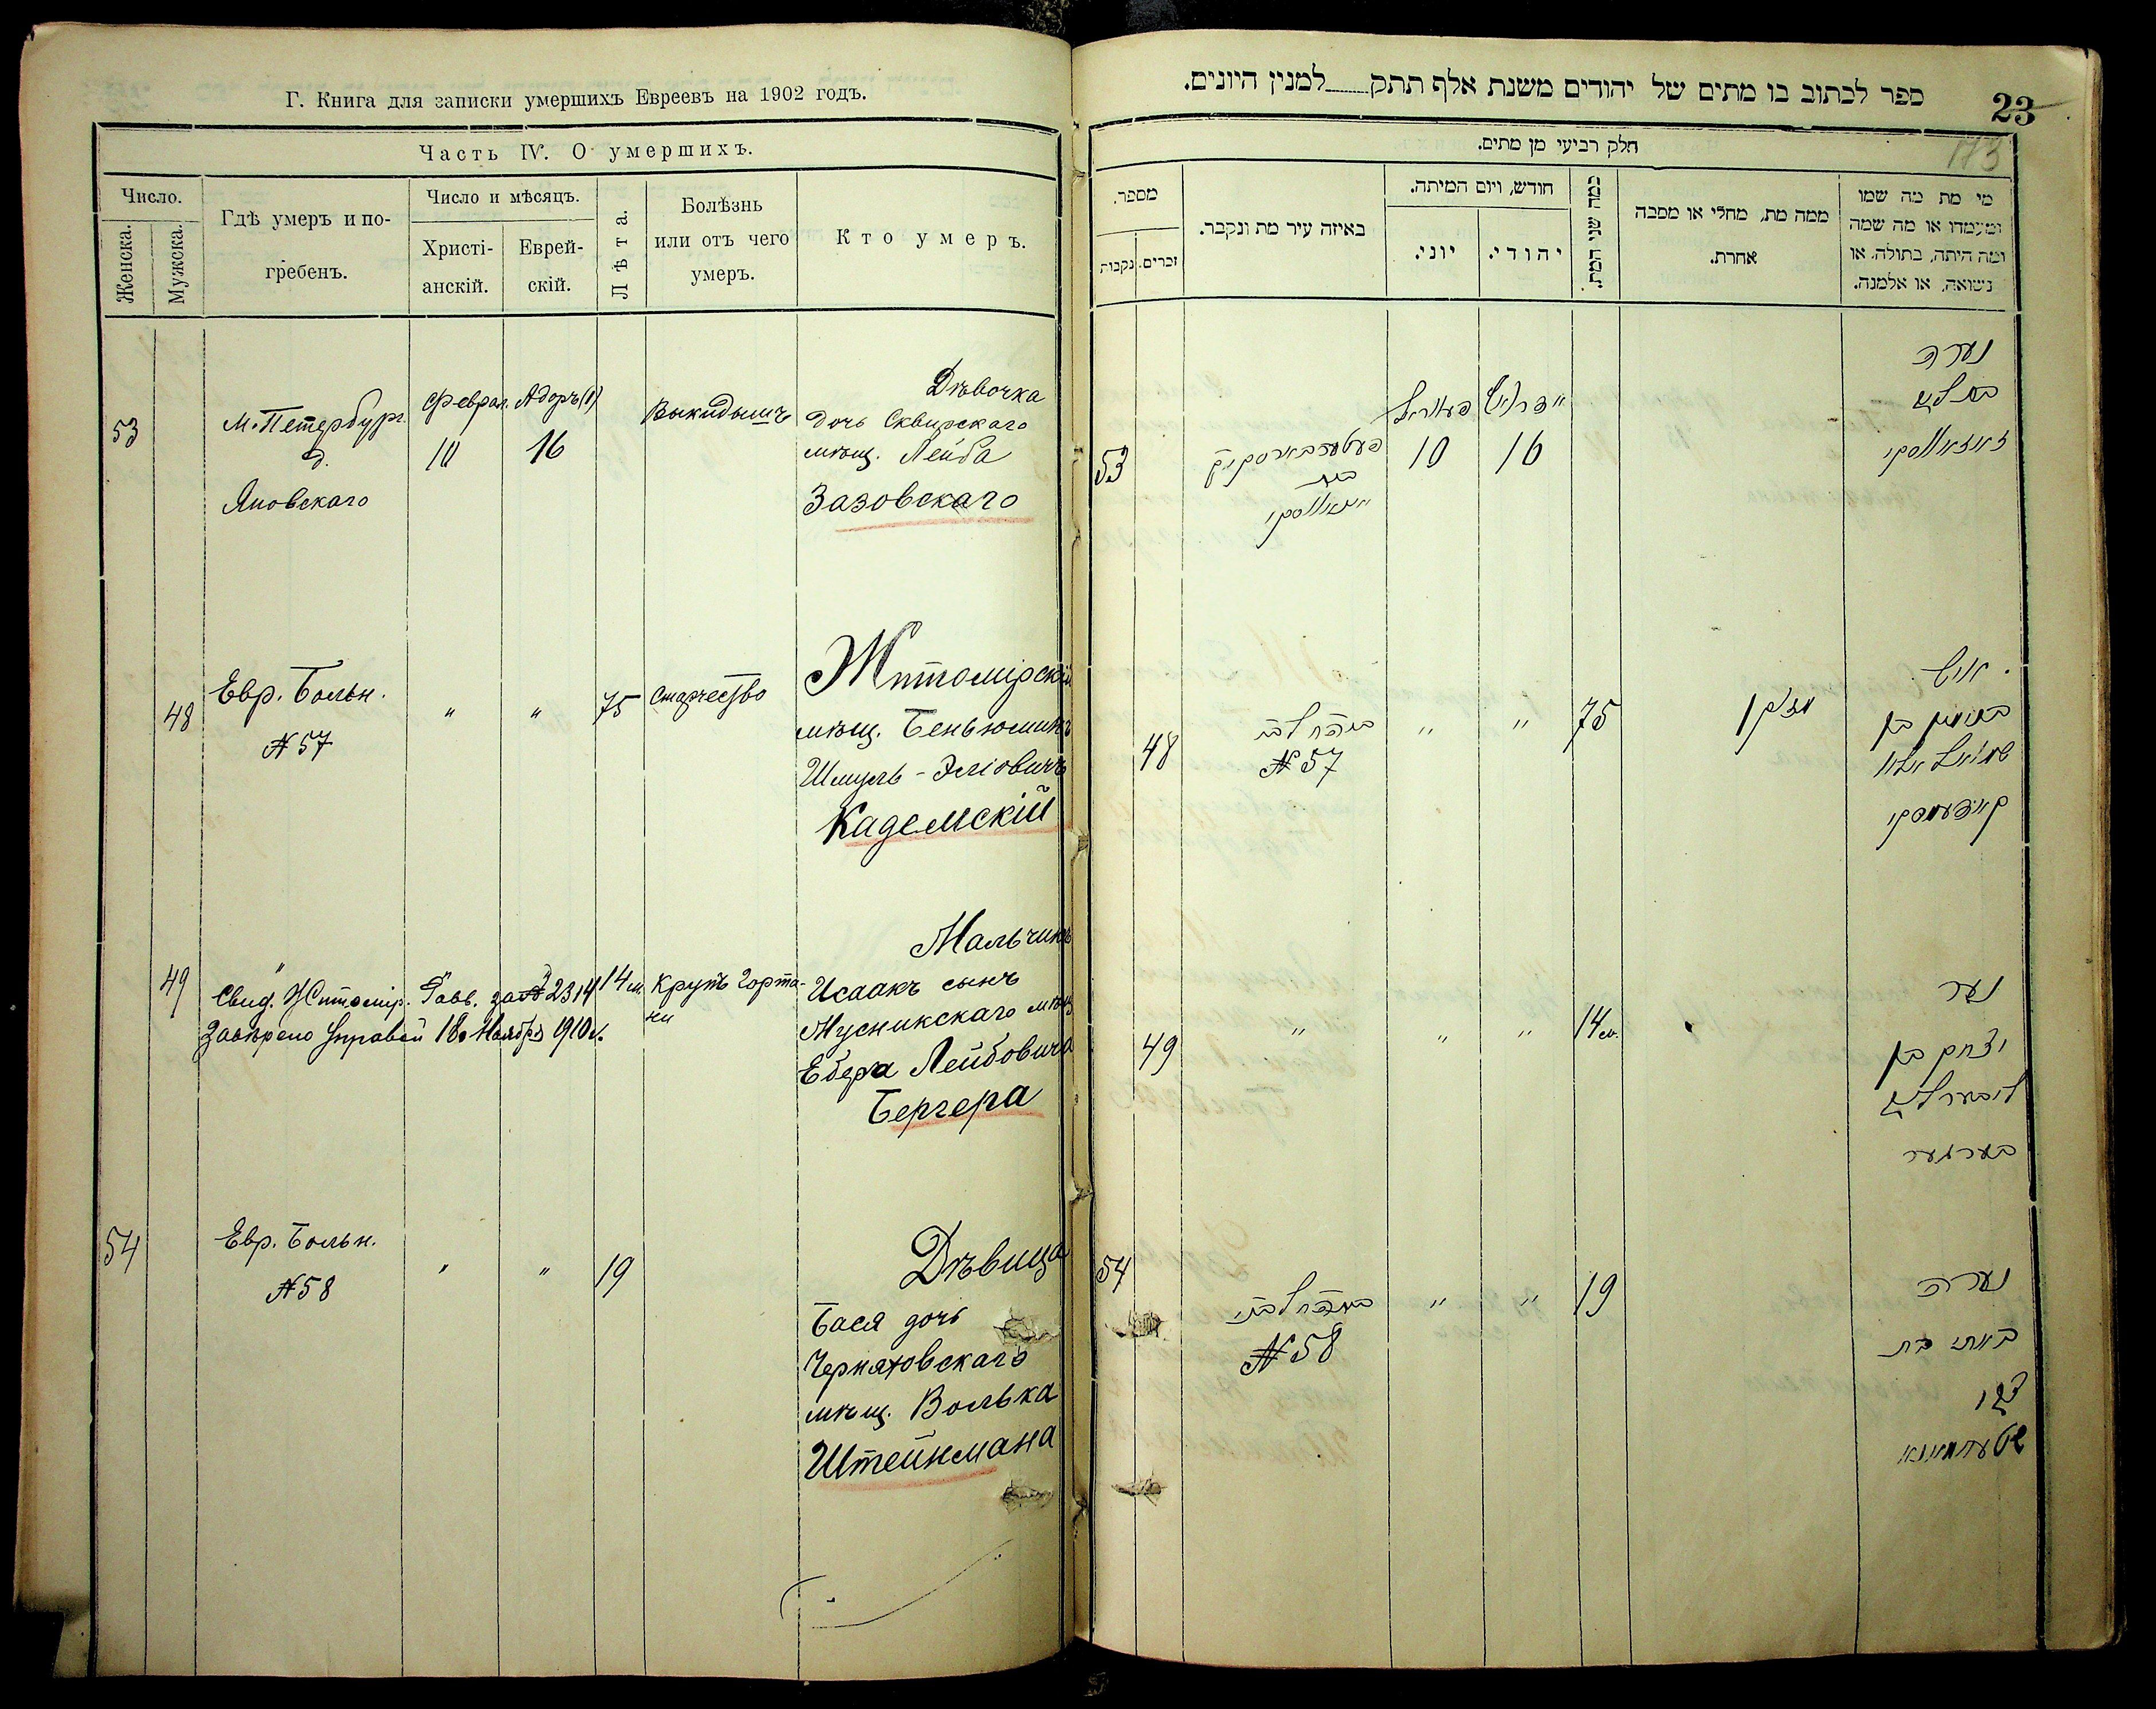 Г. Книга для записки умершихъ Евреевъ на 1902 годъ.
Часть IV. О умершихъ.
Число.
Женска.
Мужска.
Гдѣ умеръ и по-
гребенъ.
Число и мѣсяцъ.
Христі-
анскій.
Еврей-
скій.
Лѣта.
Болѣзнь
или отъ чего
умеръ.
Кто умеръ.
53
М. Петербург.
д.
Яновскаго
Феврал.
10
Адоръ (1)
16
Выкидышъ
Дѣвочка
дочь Сквирскаго
мѣщ. Лейба
Зазовскаго
48
Евр. Больн.
№ 57
"
"
75
Старчество
Житомірскій
мѣщ. Беньюминъ
Шмуль-Эліовичъ
Кадемскій
49
"
"
"
14 м.
Крупъ горта-
ни
Свид. Житомір. Равв. за № 2314
Завѣрено Управой 18 Ноября 1910 г.
Мальчикъ
Исаакъ сынъ
Мусникскаго мѣщ
Лейбовича
Бергера
54
Евр. Больн.
№ 58
"
"
19
Дѣвица
Бася дочь
Черняховскаго
мѣщ. Волька
Штейнмана
ספר לכתוב בו מתים של יהודים משנת אלף תתק למנין היונים.
23
173
חלק רביעי מן מתים.
מספר.
נקבות
זכרים.
באיזה עיר מת ונקבר.
חודש, ויום המיתה.
יוני.
יהודי.
כמה שני המת.
ממה מת, מחלי או מסבה
אחרת.
מי מת מה שמו
ומעמדו או מה שמה
ומה היתה, בתולה, או
נשואה, או אלמנה.
53
10
16
נערה
48
№ 57
"
"
75
איש
בנימין בן
49
"
"
"
14 м.
נער
יצחק בן
בערגער
54
№ 58
"
"
19
נערה
באסי בת